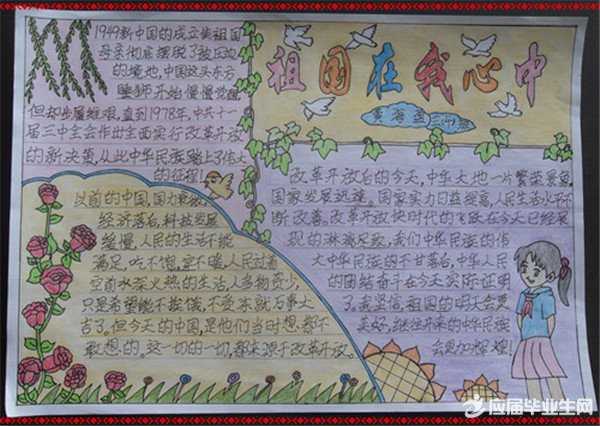 祖国在我心中
1949新中国的成立使祖国
母亲彻底摆脱了被压迫
的境地，中国这头东方
睡狮开始慢慢觉醒
但却步履维艰，直到1978年，中共十一
届三中全会作出全面实行改革开放
的新决策，从此中华民族踏上了伟大
的征程！
以前的中国，国力衰微，
经济落后，科技发展
缓慢，人民的生活不能
满足，吃不饱，穿不暖，人民过着
空前水深火热的生活，人多物资少，
只是希望能不挨饿，不受冻就石事大
吉了，但今天的中国，是他们当时想都不
敢想的，这一切的一切，都来源于改革开放。
改革开放后的今天，中华大地一片繁荣景象，
国家发展迅速。国家实力日益提高，人民生活水平不
断改善。改革开放使时代的飞跃在今天已经展
现的淋漓尽致，我们中华民族的伟
大中华民族的不甘落后，中华人民
的团结奋斗在今天实际证明
了，我坚信，祖国的明天会更
美好，继往开来的中华民族
会更加辉煌！
应届毕业生网